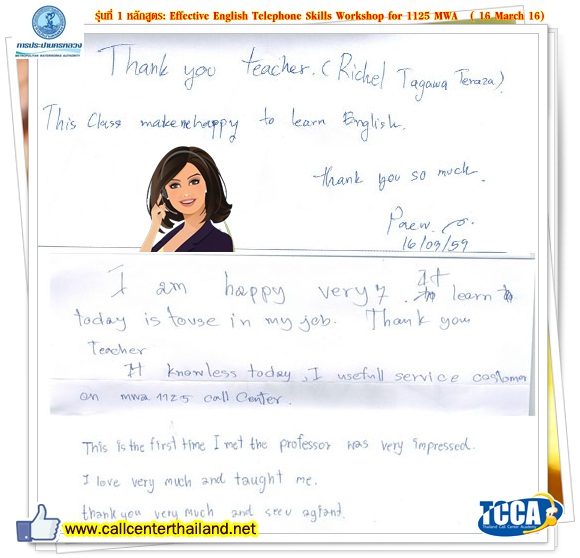 รุ่นที่ 1 หลักสูตร: Effective English Telephone Skills Workshop for 1125 MWA ( 16 March 16)
การประปานครหลวง
METROPOLITAN WATERWORKS AUTHORITY
Thank you teacher. (Richel Tagawa Teraza).
This Class make me happy to learn English.
thank you so much.
Praew.
16/03/59
I am happy very ๆ. It learn
today is to use in my job. Thank you
Teacher
It knowless today, I usefull service costomer
on mwa 1125 call Center.
This is the first time I met the professor was very impressed.
I love very much and taught me.
thank you very much and
TCCA
Thailand Call Center Academy
www.callcenterthailand.net